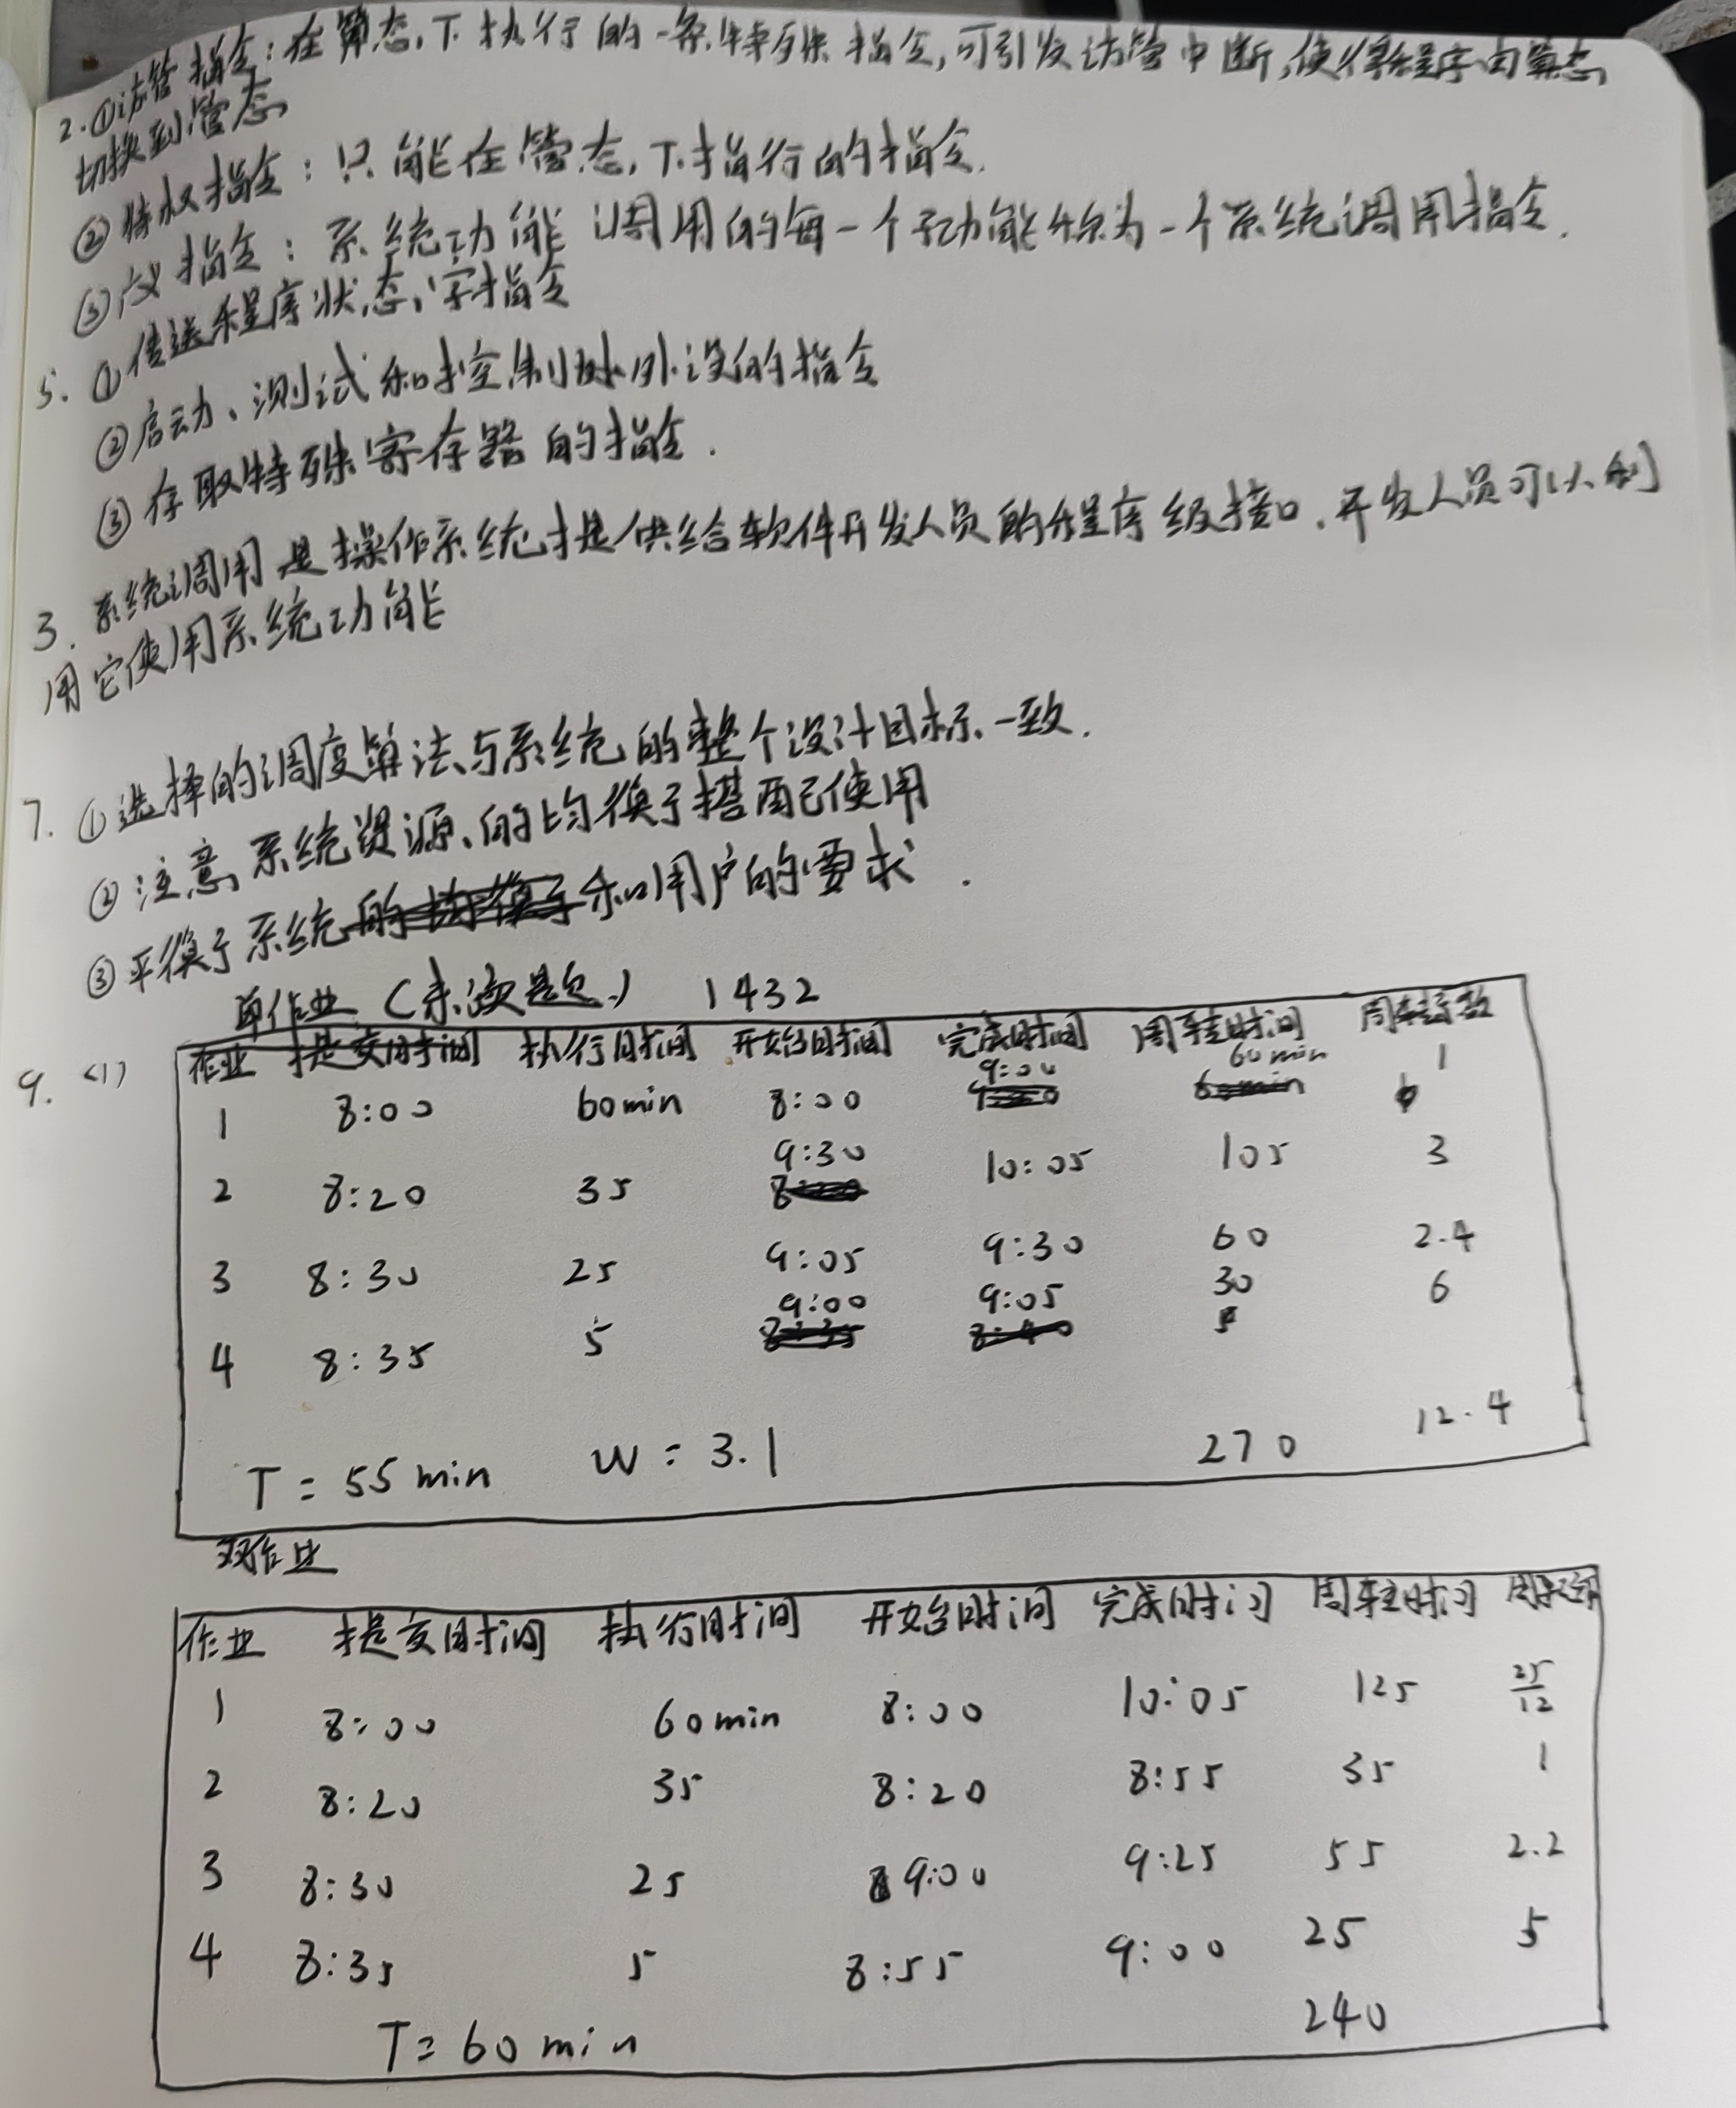 2.①访管指令:在算态,下执行的一条特殊指令,可引发访管中断,使得程序由算态
切换到管态
②特权指令:只能在管态,下指行的指令.
③广义指令:系统功能调用的每一个子功能称为一个系统调用指令.
5.①传送程序状态,字指令
②启动、测试和控制外设的指令
③存取特殊寄存器的指令.
3.系统调用是操作系统提供给软件开发人员的程序级接口.开发人员可以利
用它使用系统功能
7.①选择的调度算法与系统的整个设计目标一致.
②注意系统资源的均衡搭配使用
③平衡系统和用户的要求.
单作业 1432
9. <1> 作业 提交时间 执行时间 开始时间 完成时间 周转时间 周转系数
1 8:00 60min 8:00 9:00 60min 1
2 8:20 35 9:30 10:05 105 3
3 8:30 25 9:05 9:30 60 2.4
4 8:35 5 9:00 9:05 30 6
T = 55 min W = 3.1 270 12.4
双作业
作业 提交时间 执行时间 开始时间 完成时间 周转时间
1 8:00 60min 8:00 10:05 125 25/12
2 8:20 35 8:20 8:55 35 1
3 8:30 25 9:00 9:25 55 2.2
4 8:35 5 8:55 9:00 25 5
T = 60 min 240